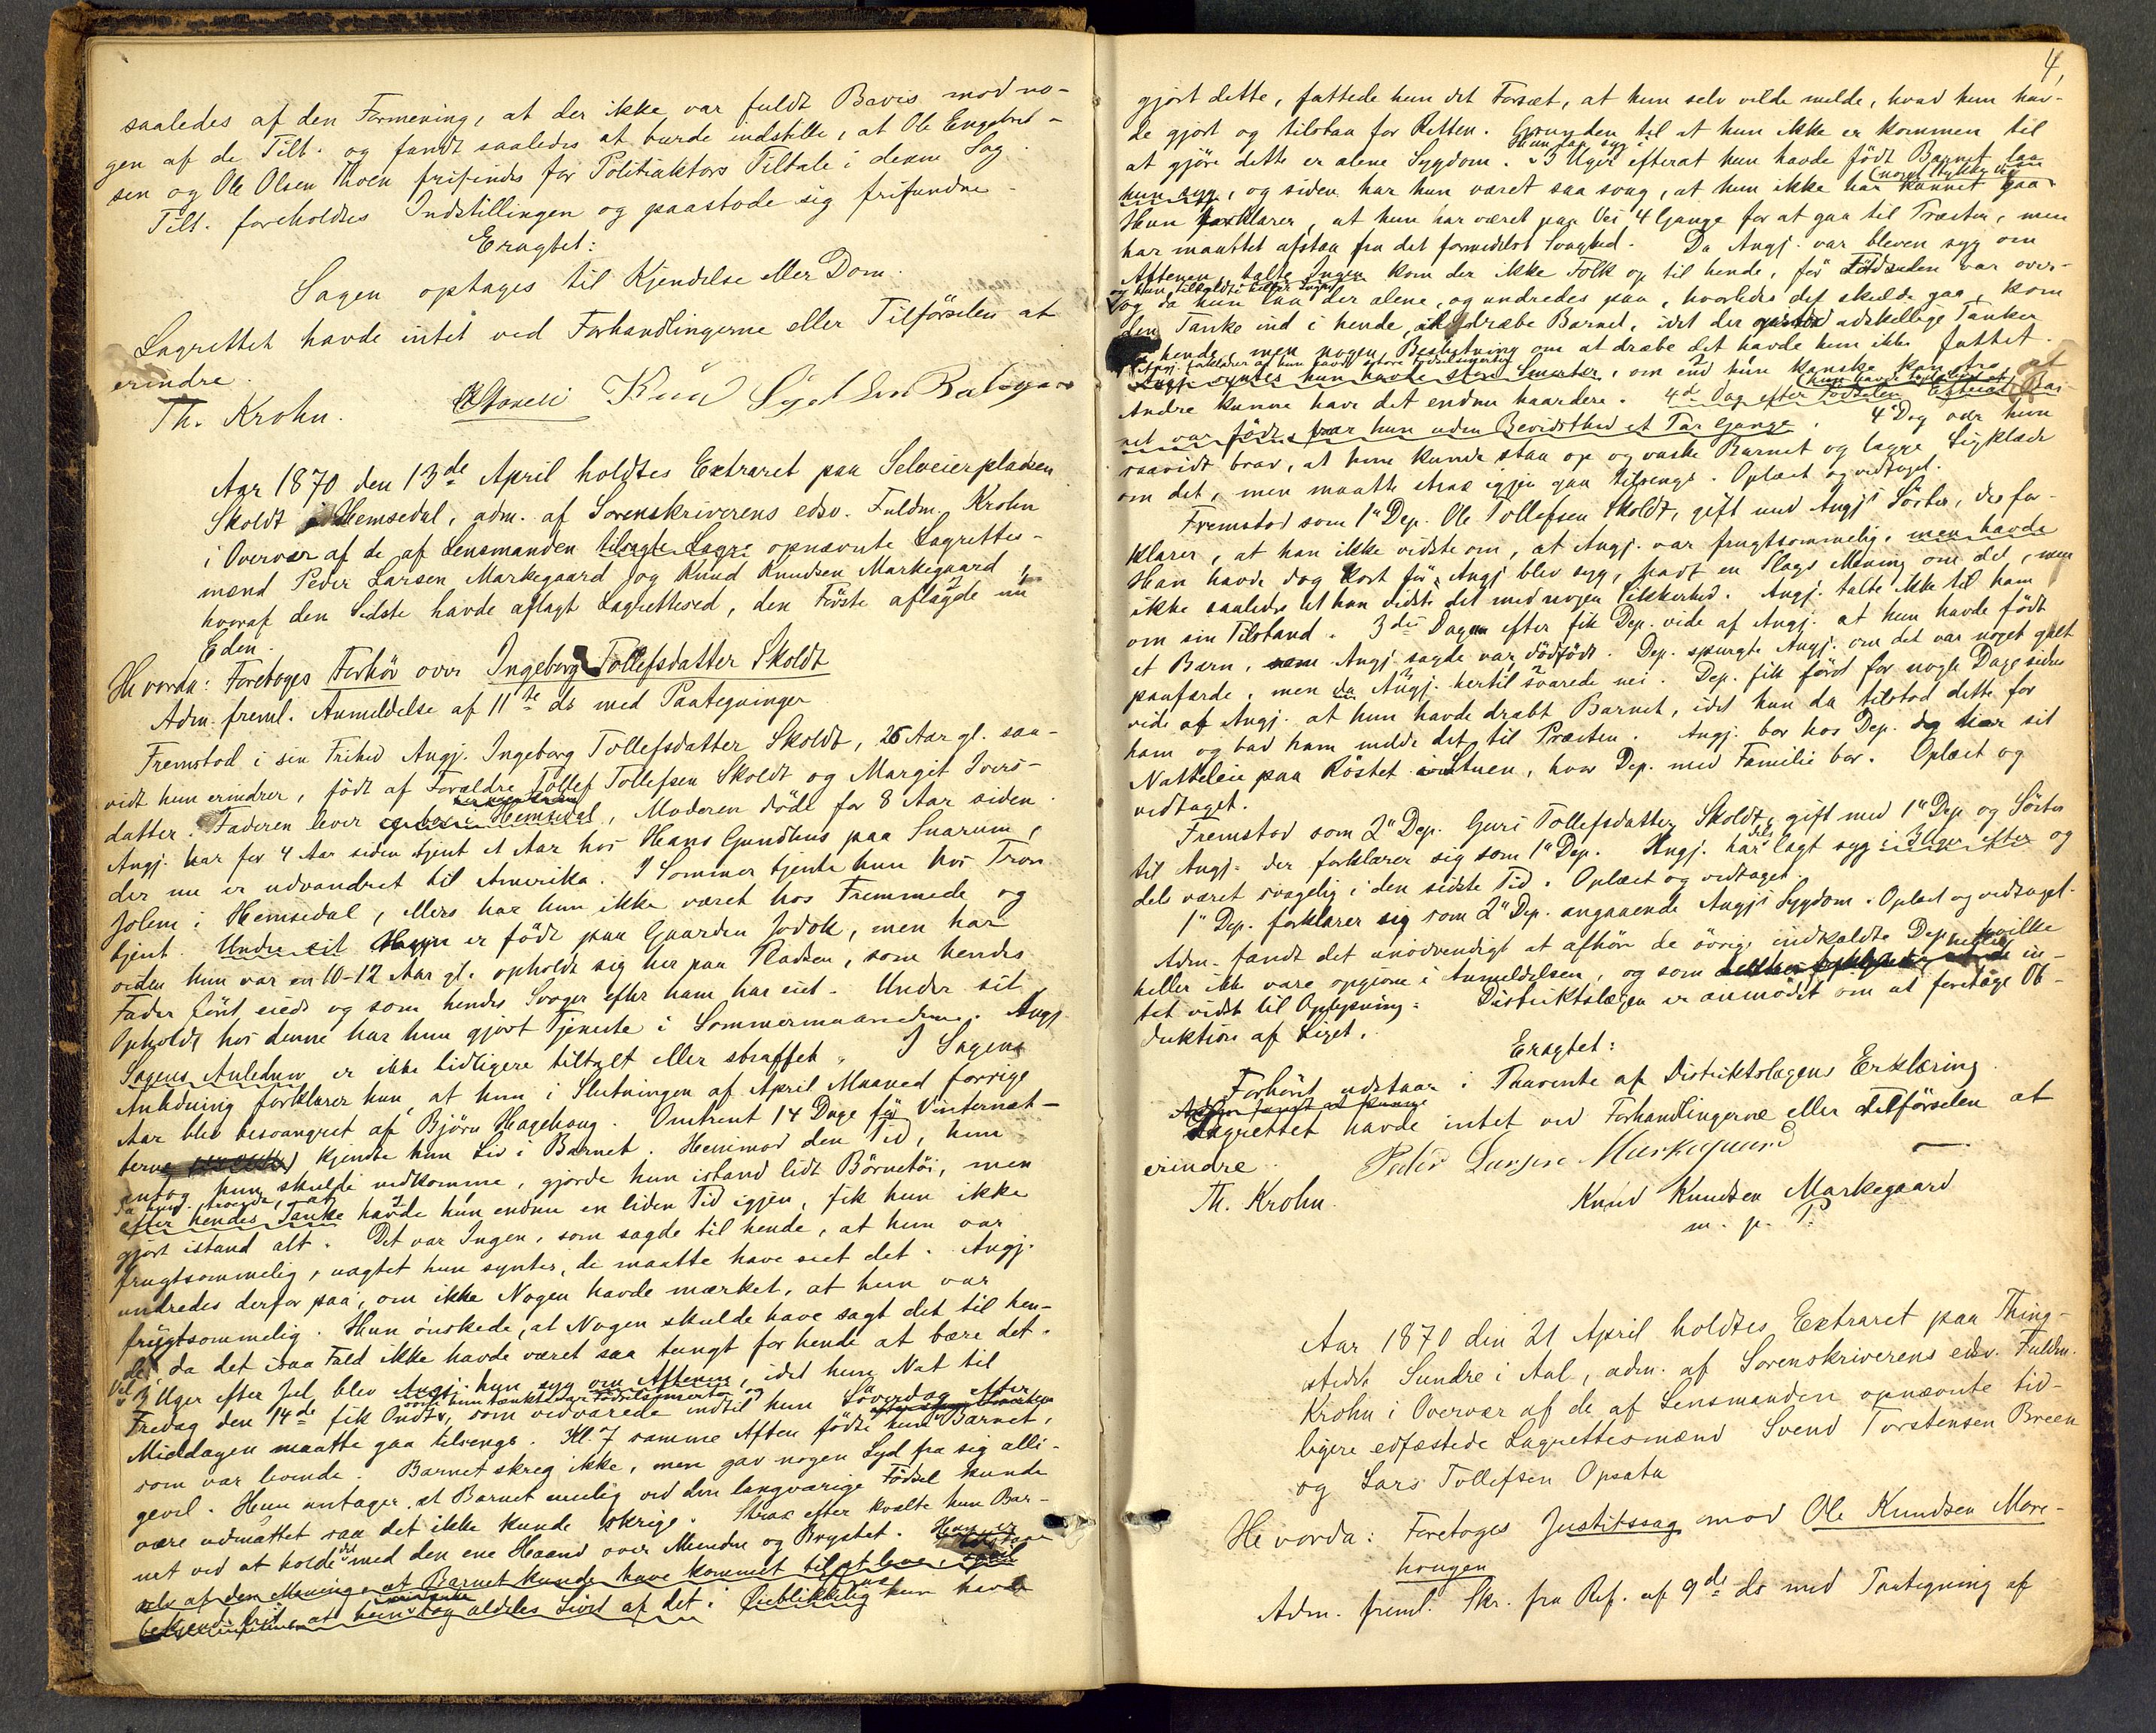 saaledes af den Formening, at der ikke var fuldt Bevis mod no-
gen af de Tilt. og fandt saaledes at burde indstille, at Ole Engebret-
sen og Ole Olsen Thoen frifindes for Politiaktors Tiltale i denne Sag.
Tilt. foreholdtes Indstillingen og paastode sig frifundne.
Eragtet:
Sagen optages til Kjendelse eller Dom.
Lagrettet havde intet ved Forhandlingerne eller Tilførselen at
erindre.
Th. Krohn. Knud
Aar 1870 den 13de April holdtes Extraret paa Selveierpladsen
Skoldt i Hemsedal, adm. af Sorenskriverens edsv. Fuldm. Krohn
i Overvær af de af Lensmanden tilsagte Lagre opnævnte Lagrettes-
mænd Peder Larsen Markegaard og Knud Knudsen Markegaard,
hvoraf den Sidste havde aflagt Lagretteseed, den Første aflagde nu
Eden.
Hvorda: Foretoges Forhør over Ingeborg Tollefsdatter Skoldt
Adm. freml. Anmeldelse af 11te ds med Paategninger
Fremstod i sin Frihed Angj. Ingeborg Tollefsdatter Skoldt, 26 Aar gl. saa-
vidt hun erindrer, født af Forældre Tollef Tollefsen Skoldt og Margit Ivers-
datter. Faderen lever i Hemsedal, Moderen døde for 8 Aar siden.
Angj. har for 4 Aar siden tjent et Aar hos Hans Gundhus paa Snarum,
der nu er udvandret til Amerika. I Sommer tjente hun hos Tron
Jolem i Hemsedal, ellers har hun ikke været hos Fremmede og
tjent. Under sit Angj. er født paa Gaarden Jodok, men har
siden hun var en 10-12 Aar gl. opholdt sig her paa Pladsen, som hendes
Fader først eiede og som hendes Svoger efter ham har eiet. Under sit
Ophold hos denne har hun gjort Tjeneste i Sommermaanederne. Angj.
Sagens Anledning er ikke tidligere tiltalt eller straffet. I Sagens
Anledning forklarer hun, at hun i Slutningen af April Maaned forrige
Aar blev besvangret af Bjørn Hagehaug. Omtrent 14 Dage før Vinternæt-
terne kjendte hun Liv i Barnet. Henimod den Tid, hun
antog hun skulde nedkomme, gjorde hun istand lidt Børnetøi, men
da hun troede, at
efter hendes Tanke havde hun endnu en liden Tid igjen, fik hun ikke
gjort istand alt. Det var Ingen, som sagde til hende, at hun var
frugtsommelig, uagtet hun syntes, de maatte have seet det. Angj.
undredes derfor paa, om ikke Nogen havde mærket, at hun var
frugtsommelig. Hun ønskede, at Nogen skulde have sagt det til hen-
de, da det isaa Fald ikke havde været saa tungt for hende at bære det.
Vel 3 Uger efter Jul blev Angj. hun syg om Aftenen, idet hun Nat til
som hun tænkte var Fødselssmerter og
Fredag den 14de fik Ondt, som vedvarede indtil hun Løverdag efter
Middagen maatte gaa tilsengs. Kl. 7 samme Aften fødte hun Barnet,
som var levende. Barnet skreg ikke, men gav nogen Lyd fra sig alli-
gevel. Hun antager, at Barnet muelig ved den langvarige Fødsel kunde
være udmattet saa det ikke kunde skrige. Strax efter kvalte hun Bar-
net ved at holde det med den ene Haand over Munden og Brystet. Hun er
selv af den Mening, at Barnet kunde have kommet til at leve,
at hun tog aldeles Livet af det. Øieblikkelig hun havde
4,
gjort dette, fattede hun det Forsæt, at hun selv vilde melde, hvad hun hav-
de gjort og tilstaa for Retten. Grunden til at hun ikke er kommen til
Hun laa syg i
at gjøre dette er alene Sygdom. 3 Uger efterat hun havde født Barnet laa
noget Stykke Vei
hun syg, og siden har hun været saa svag, at hun ikke har kunnet gaa.
Hun forklarer, at hun har været paa Vei 4 Gange for at gaa til Præsten, men
har maattet afstaa fra det formedelst Svaghed. Da Angj. var bleven syg om
Aftenen, talte Ingen kom der ikke Folk op til hende, før Fødselen var over-
og hun tilkaldte heller Ingen
og da hun laa der alene, og undredes paa, hvorledes det skulde gaa, kom
den Tanke ind i hende, at dræbe Barnet, idet der opstod adskillige Tanker
hende, men nogen Beslutning om at dræbe det havde hun ikke fattet.
Angj. forklarer at hun havde større Fødselssmerter
Angj. syntes hun havde store Smerter, om end hun kanske kan tro at
Andre kunne have det endnu haardere. 4de Dag efter Fødselen Efterat Bar-
net var født, var hun uden Bevidsthed et Par Gange. 4de Dag var hun
saavidt brav, at hun kunde staa op og vaske Barnet og lægge Ligklæde
om det, men maatte strax igjen gaa tilsengs. Oplæst og vedtaget.
Fremstod som 1ste Dep. Ole Tollefsen Skoldt, gift med Angj.s Søster, der for-
klarer, at han ikke vidste om, at Angj. var frugtsommelig, men havde
Han havde dog kort før Angj. blev syg, havt en Slags Mening om det, men
ikke saaledes at han vidste det med nogen Sikkerhed. Angj. talte ikke til ham
om sin Tilstand. 3die Dagen efter fik Dep. vide af Angj. at hun havde født
et Barn, som Angj. sagde var dødfødt. Dep. spurgte Angj. om det var noget galt
paafærde, men da Angj. hertil svarede nei. Dep. fik først for nogle Dage siden
vide af Angj. at hun havde dræbt Barnet, idet hun da tilstod dette for
ham og bad ham melde det til Præsten. Angj. bor hos Dep. og har sit
Natteleie paa Røstet i Stuen, hvor Dep. med Familie bor. Oplæst og
vedtaget.
Fremstod som 2den Dep. Guri Tollefsdatter Skoldt, gift med 1ste Dep. og Søster
til Angj. der forklarer sig som 1ste Dep. Angj. har dels lagt syg i 3 Uger efter og
dels været svagelig i den sidste Tid. Oplæst og vedtaget.
1ste Dep. forklarer sig som 2den Dep. angaaende Angj.s Sygdom. Oplæst og vedtaget.
Adm. fandt det unødvendigt at afhøre de øvrige indkaldte Dep. hvilke
heller ikke vare opgivne i Anmeldelsen, og som in-
tet vidst til Oplysning. Distriktslægen er anmodet om at foretage Ob-
duktion af Liget.
Eragtet:
Forhøret udstaar i Paavente af Distriktslægens Erklæring.
Lagrettet havde intet ved Forhandlingerne eller Tilførselen at
erindre.
Peder Larsen Markegaard
Th. Krohn. Knud Knudsen Markegaard
m. p. P.
Aar 1870 den 21 April holdtes Extraret paa Thing-
stedet Sundre i Aal, adm. af Sorenskriverens edsv. Fuldm.
Krohn i Overvær af de af Lensmanden opnævnte tid-
ligere edfæstede Lagrettesmænd Svend Torstensen Breen
og Lars Tollefsen Opsata
Hvorda: Foretoges Justitssag mod Ole Knudsen More-
haugen
Adm. freml. Skr. fra Ref. af 9de ds med Paategning af